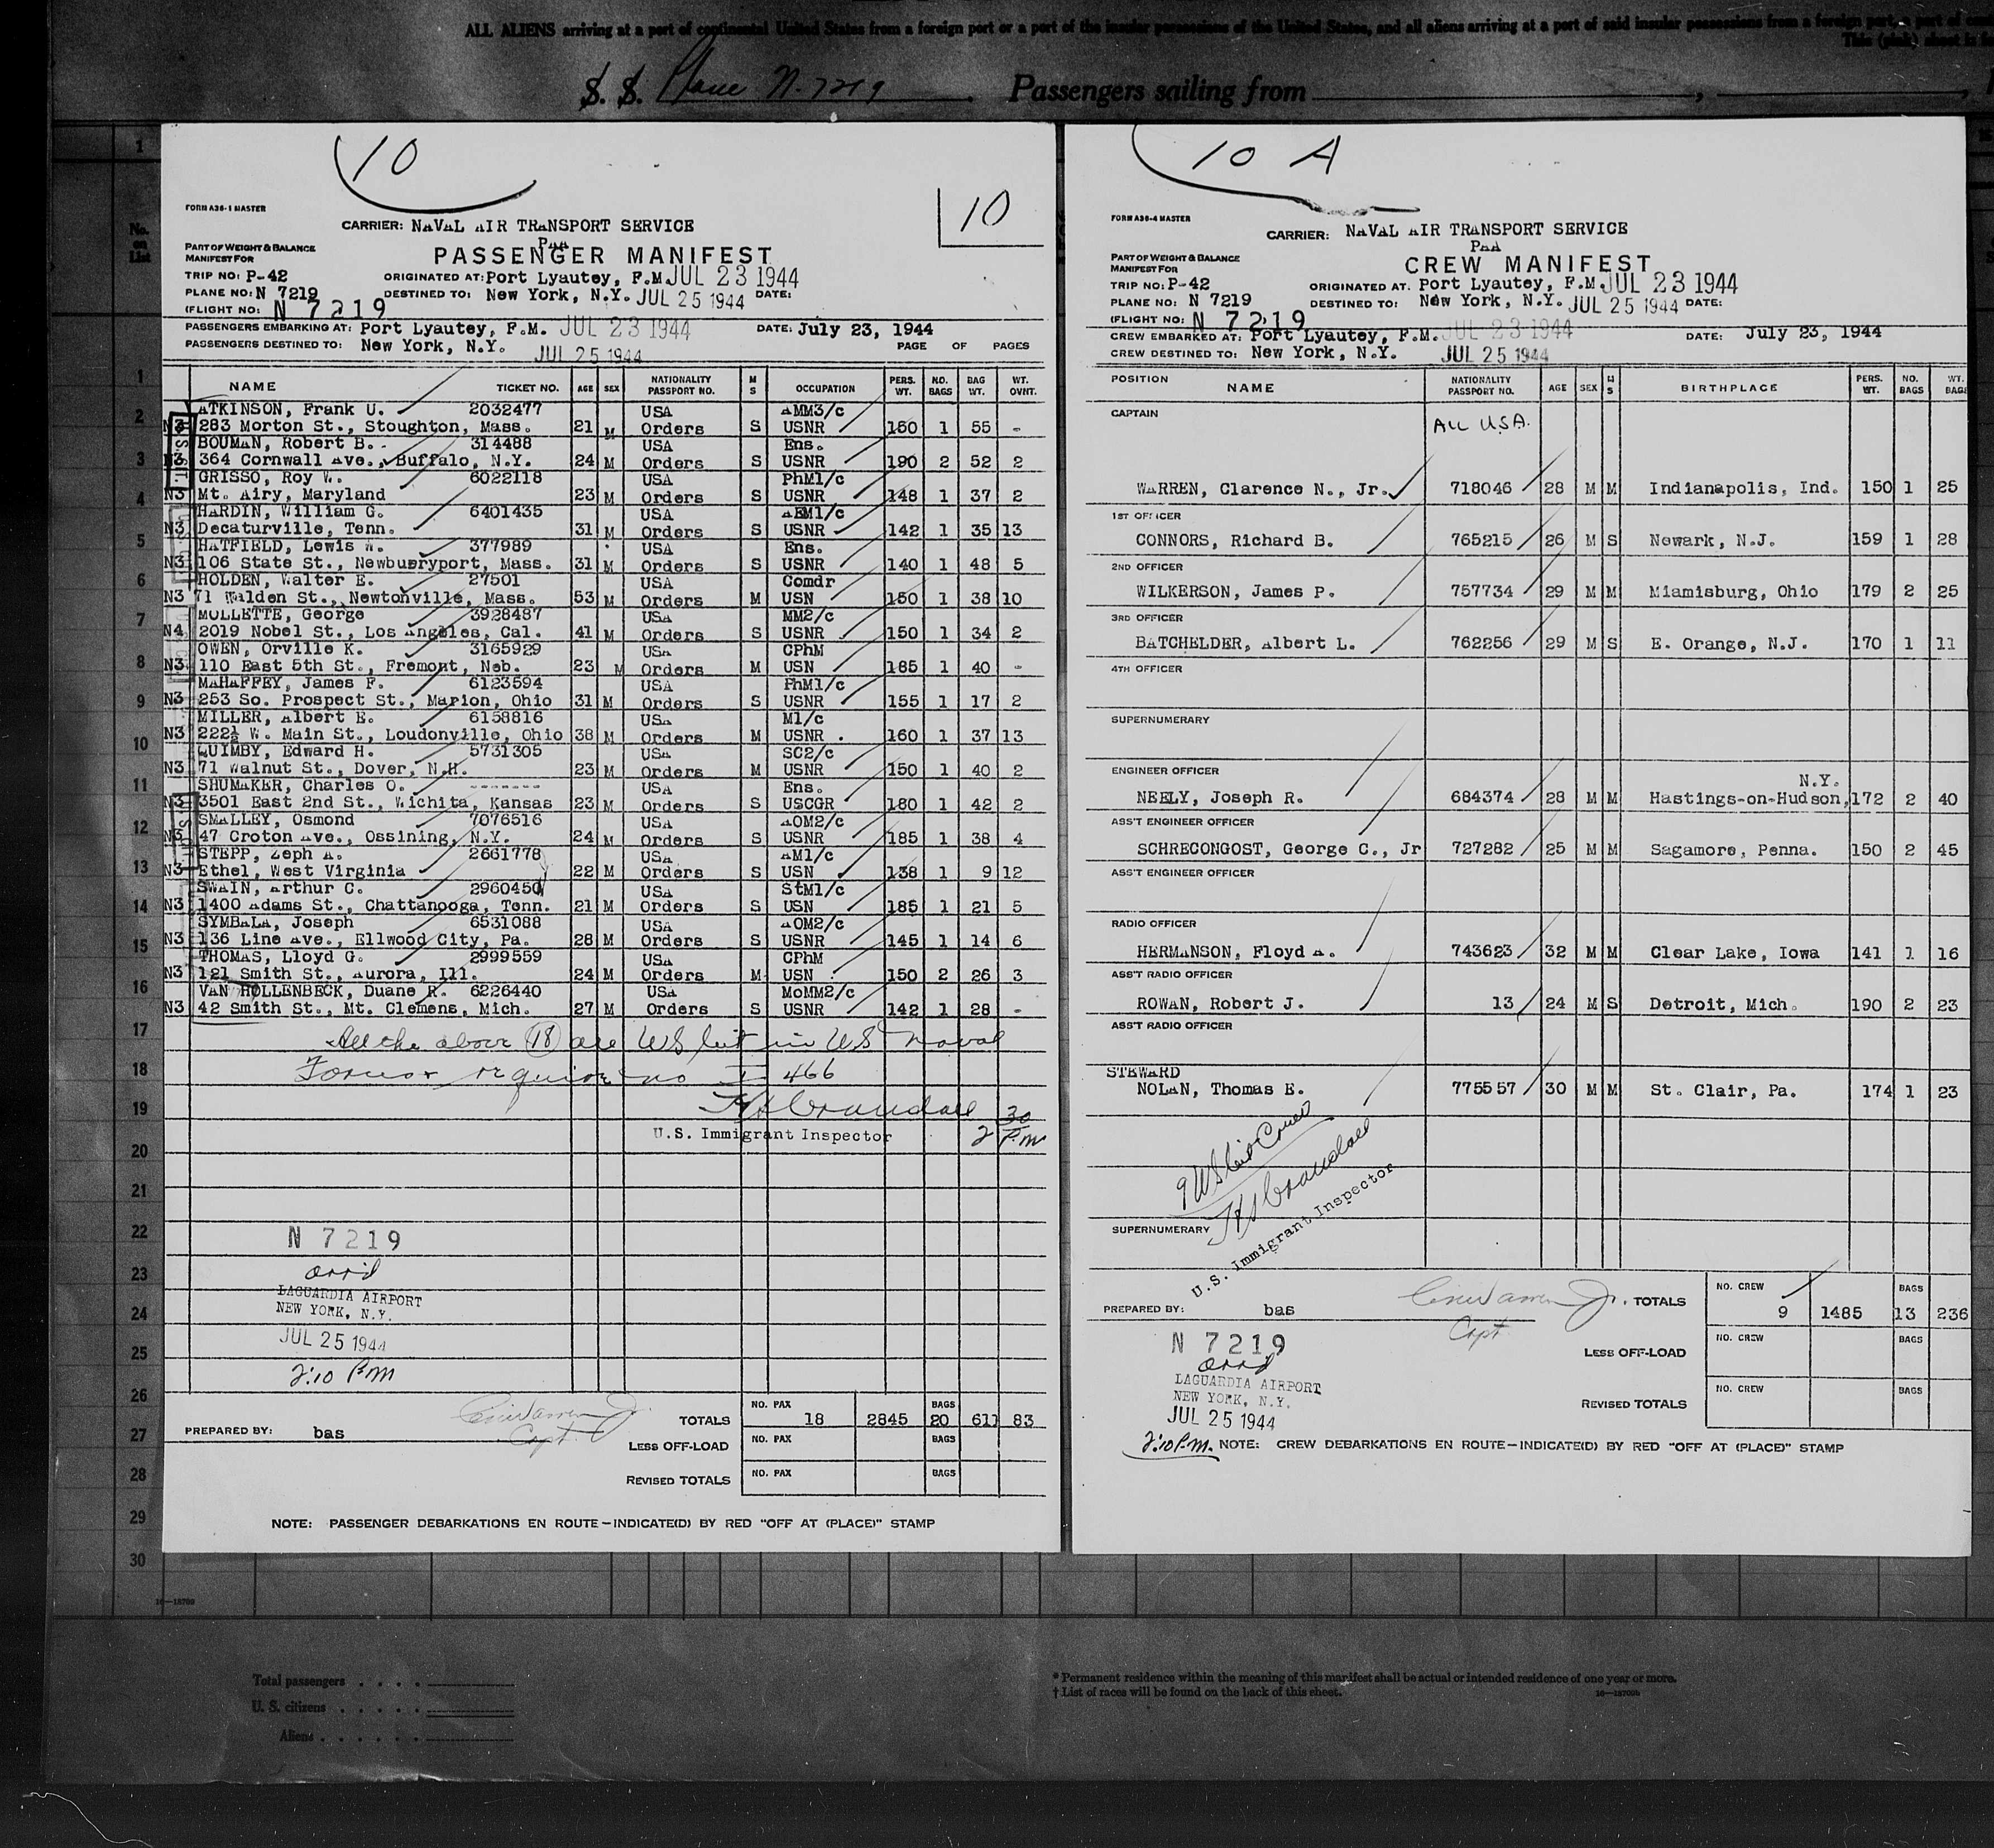 ALL ALIENS arriving at a port of continental United States from a foreign port or a port of the insular possessions of the United States, and all aliens arriving at a port of said insular possessions from a foreign port, a part of
This (pink) sheet is
S. S. Plane N. 7219 Passengers sailing from
No. on List
10
10
FORM A36-1 MASTER
CARRIER: NAVAL AIR TRANSPORT SERVICE
PAA
PART OF WEIGHT & BALANCE
MANIFEST FOR
PASSENGER MANIFEST
TRIP NO: P-42 ORIGINATED AT: Port Lyautey, F.M. JUL 23 1944
PLANE NO: N 7219 DESTINED TO: New York, N.Y. JUL 25 1944 DATE:
(FLIGHT NO: N 7219
PASSENGERS EMBARKING AT: Port Lyautey, F.M. JUL 23 1944 DATE: July 23, 1944
PASSENGERS DESTINED TO: New York, N.Y. JUL 25 1944 PAGE OF PAGES
NAME TICKET NO. AGE SEX NATIONALITY PASSPORT NO. M S OCCUPATION PERS. WT. NO. BAGS BAG WT. WT. OVNT.
ATKINSON, Frank U. 2032477 USA AMM3/c
N3 283 Morton St., Stoughton, Mass. 21 M Orders S USNR 150 1 55 -
BOUMAN, Robert B. 314488 USA Ens.
N3 364 Cornwall Ave., Buffalo, N.Y. 24 M Orders S USNR 190 2 52 2
GRISSO, Roy W. 6022118 USA PhM1/c
N3 Mt. Airy, Maryland 23 M Orders S USNR 148 1 37 2
HARDIN, William G. 6401435 USA AEM1/c
N3 Decaturville, Tenn. 31 M Orders S USNR 142 1 35 13
HATFIELD, Lewis W. 377989 USA Ens.
N3 106 State St., Newburyport, Mass. 31 M Orders S USNR 140 1 48 5
HOLDEN, Walter E. 27501 USA Comdr
N3 71 Walden St., Newtonville, Mass. 53 M Orders M USN 150 1 38 10
MOLLETTE, George 3928487 USA MM2/c
N4 2019 Nobel St., Los Angeles, Cal. 41 M Orders S USNR 150 1 34 2
OWEN, Orville K. 3165929 USA CPhM
N3 110 East 5th St., Fremont, Neb. 23 M Orders M USN 185 1 40 -
MAHAFFEY, James F. 6123594 USA PhM1/c
N3 253 So. Prospect St., Marion, Ohio 31 M Orders S USNR 155 1 17 2
MILLER, Albert E. 6158816 USA M1/c
N3 222½ W. Main St., Loudonville, Ohio 38 M Orders M USNR . 160 1 37 13
QUIMBY, Edward H. 5731305 USA SC2/c
N3 71 Walnut St., Dover, N.H. 23 M Orders M USNR 150 1 40 2
SHUMAKER, Charles O. ------- USA Ens.
N3 3501 East 2nd St., Wichita, Kansas 23 M Orders S USCGR 180 1 42 2
SMALLEY, Osmond 7076516 USA AOM2/c
N3 47 Croton Ave., Ossining, N.Y. 24 M Orders S USNR 185 1 38 4
STEPP, Zeph A. 2661778 USA AM1/c
N3 Ethel, West Virginia 22 M Orders S USN 138 1 9 12
SWAIN, Arthur C. 2960450 USA StM1/c
N3 1400 Adams St., Chattanooga, Tenn. 21 M Orders S USN 185 1 21 5
SYMBALA, Joseph 6531088 USA AOM2/c
N3 136 Line Ave., Ellwood City, Pa. 28 M Orders S USNR 145 1 14 6
THOMAS, Lloyd G. 2999559 USA CPhM
N3 121 Smith St., Aurora, Ill. 24 M Orders M USN 150 2 26 3
VAN HOLLENBECK, Duane R. 6226440 USA MoMM2/c
N3 42 Smith St., Mt. Clemens, Mich. 27 M Orders S USNR 142 1 28 -
All the above (18) are US Cit in US Naval
require no I 466
H S Crandall
U.S. Immigrant Inspector 2 30 P.M
N 7219
arr'd
LAGUARDIA AIRPORT
NEW YORK, N.Y.
JUL 25 1944
2:10 PM
NO. PAX BAGS
TOTALS 18 2845 20 611 83
PREPARED BY: bas Capt.
LESS OFF-LOAD NO. PAX BAGS
REVISED TOTALS NO. PAX BAGS
NOTE: PASSENGER DEBARKATIONS EN ROUTE—INDICATE(D) BY RED "OFF AT (PLACE)" STAMP
1
1
2
3
4
5
6
7
8
9
10
11
12
13
14
15
16
17
18
19
20
21
22
23
24
25
26
27
28
29
30
10 A
FORM A36-4 MASTER
CARRIER: NAVAL AIR TRANSPORT SERVICE
PAA
PART OF WEIGHT & BALANCE
MANIFEST FOR
CREW MANIFEST
TRIP NO: P-42 ORIGINATED AT. Port Lyautey, F.M. JUL 23 1944
PLANE NO: N 7219 DESTINED TO: New York, N.Y. JUL 25 1944 DATE:
(FLIGHT NO: N 7219
CREW EMBARKED AT: Port Lyautey, F.M. JUL 23 1944 DATE: July 23, 1944
CREW DESTINED TO: New York, N.Y. JUL 25 1944
POSITION NAME NATIONALITY PASSPORT NO. AGE SEX M S BIRTHPLACE PERS. WT. NO. BAGS WT. BAGS
CAPTAIN
ALL U.S.A.
WARREN, Clarence N., Jr. 718046 28 M M Indianapolis, Ind. 150 1 25
1ST OFFICER
CONNORS, Richard B. 765215 26 M S Newark, N.J. 159 1 28
2ND OFFICER
WILKERSON, James P. 757734 29 M M Miamisburg, Ohio 179 2 25
3RD OFFICER
BATCHELDER, Albert L. 762256 29 M S E. Orange, N.J. 170 1 11
4TH OFFICER
SUPERNUMERARY
ENGINEER OFFICER
N.Y.
NEELY, Joseph R. 684374 28 M M Hastings-on-Hudson, 172 2 40
ASS'T ENGINEER OFFICER
SCHRECONGOST, George C., Jr 727282 25 M M Sagamore, Penna. 150 2 45
ASS'T ENGINEER OFFICER
RADIO OFFICER
HERMANSON, Floyd A. 743623 32 M M Clear Lake, Iowa 141 1 16
ASS'T RADIO OFFICER
ROWAN, Robert J. 13 24 M S Detroit, Mich. 190 2 23
ASS'T RADIO OFFICER
STEWARD
NOLAN, Thomas E. 775557 30 M M St. Clair, Pa. 174 1 23
9 US Cit Crew
H S Crandall
U.S. Immigrant Inspector
SUPERNUMERARY
NO. CREW BAGS
TOTALS 9 1485 13 236
PREPARED BY: bas Capt
LESS OFF-LOAD NO. CREW BAGS
REVISED TOTALS NO. CREW BAGS
N 7219
arrd
LAGUARDIA AIRPORT
NEW YORK, N.Y.
JUL 25 1944
2:10 P.M. NOTE: CREW DEBARKATIONS EN ROUTE—INDICATE(D) BY RED "OFF AT (PLACE)" STAMP
16—18709
Total passengers . . . .
U. S. citizens . . . . .
Aliens . . . . . .
* Permanent residence within the meaning of this manifest shall be actual or intended residence of one year or more.
† List of races will be found on the back of this sheet.